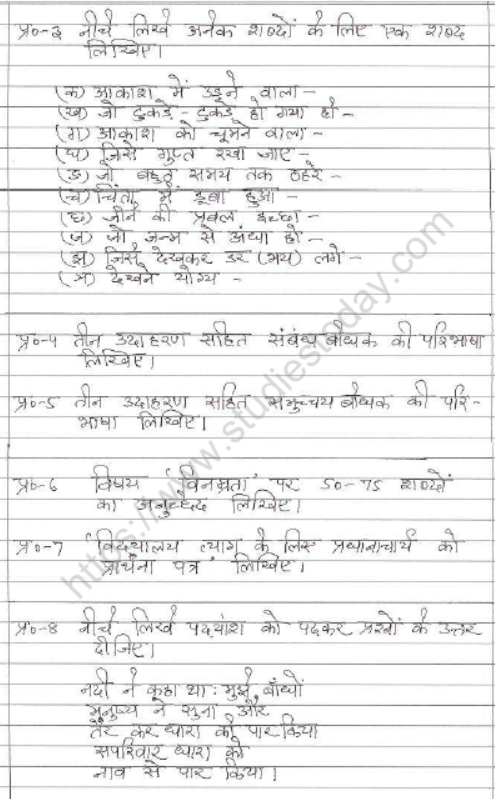 प्र०-३ नीचे लिखे अनेक शब्दों के लिए एक शब्द
लिखिए।
(क) आकाश में उड़ने वाला -
(ख) जो टुकड़े - टुकड़े हो गया हो -
(ग) आकाश को चूमने वाला -
(घ) जिसे गुप्त रखा जाए -
(ङ) जो बहुत समय तक ठहरे -
(च) चिंता में डूबा हुआ -
(छ) जीने की प्रबल इच्छा -
(ज) जो जन्म से अंधा हो -
(झ) जिसे देखकर डर (भय) लगे -
(ञ) देखने योग्य -
प्र०-4 तीन उदाहरण सहित संबंधबोधक की परिभाषा
लिखिए।
प्र०-5 तीन उदाहरण सहित समुच्चय बोधक की परि-
भाषा लिखिए।
प्र०-6 विषय 'विनम्रता' पर 50-75 शब्दों
का अनुच्छेद लिखिए।
प्र०-7 विद्यालय त्याग के लिए प्रधानाचार्य को
प्रार्थना पत्र लिखिए।
प्र०-8 नीचे लिखे पद्यांश को पढ़कर प्रश्नों के उत्तर
दीजिए।
नदी ने कहा था: मुझे बाँधों
मनुष्य ने सुना और
तैर कर धारा को पार किया
सपरिवार धारा को
नाव से पार किया।
https://www.studiestoday.com